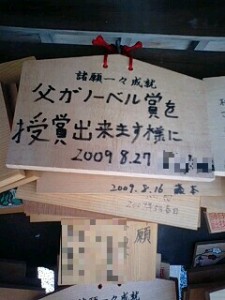 諸願一々成就
父がノーベル賞を
授賞出来ます様に
2009 8.27
2009.8.16
願
諸願一々成就